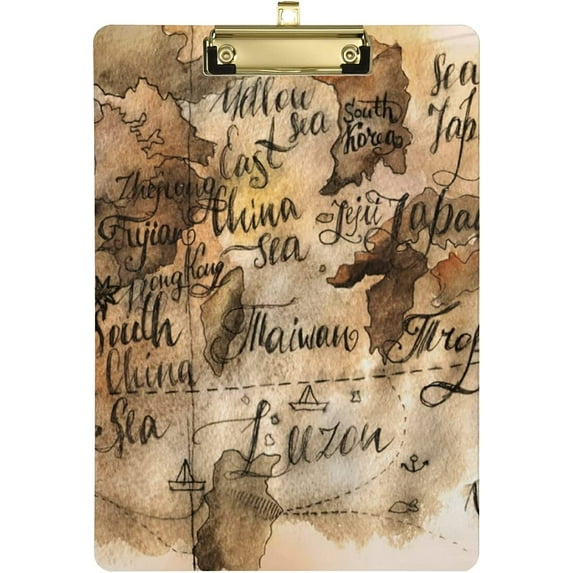 Yellow
Sea
South
Korea
Sea
Jap
East
China
Sea
Zhejiang
Fujian
Hong Kong
Jeju
Japa
South
China
Sea
Taiwan
Trop
Luzon